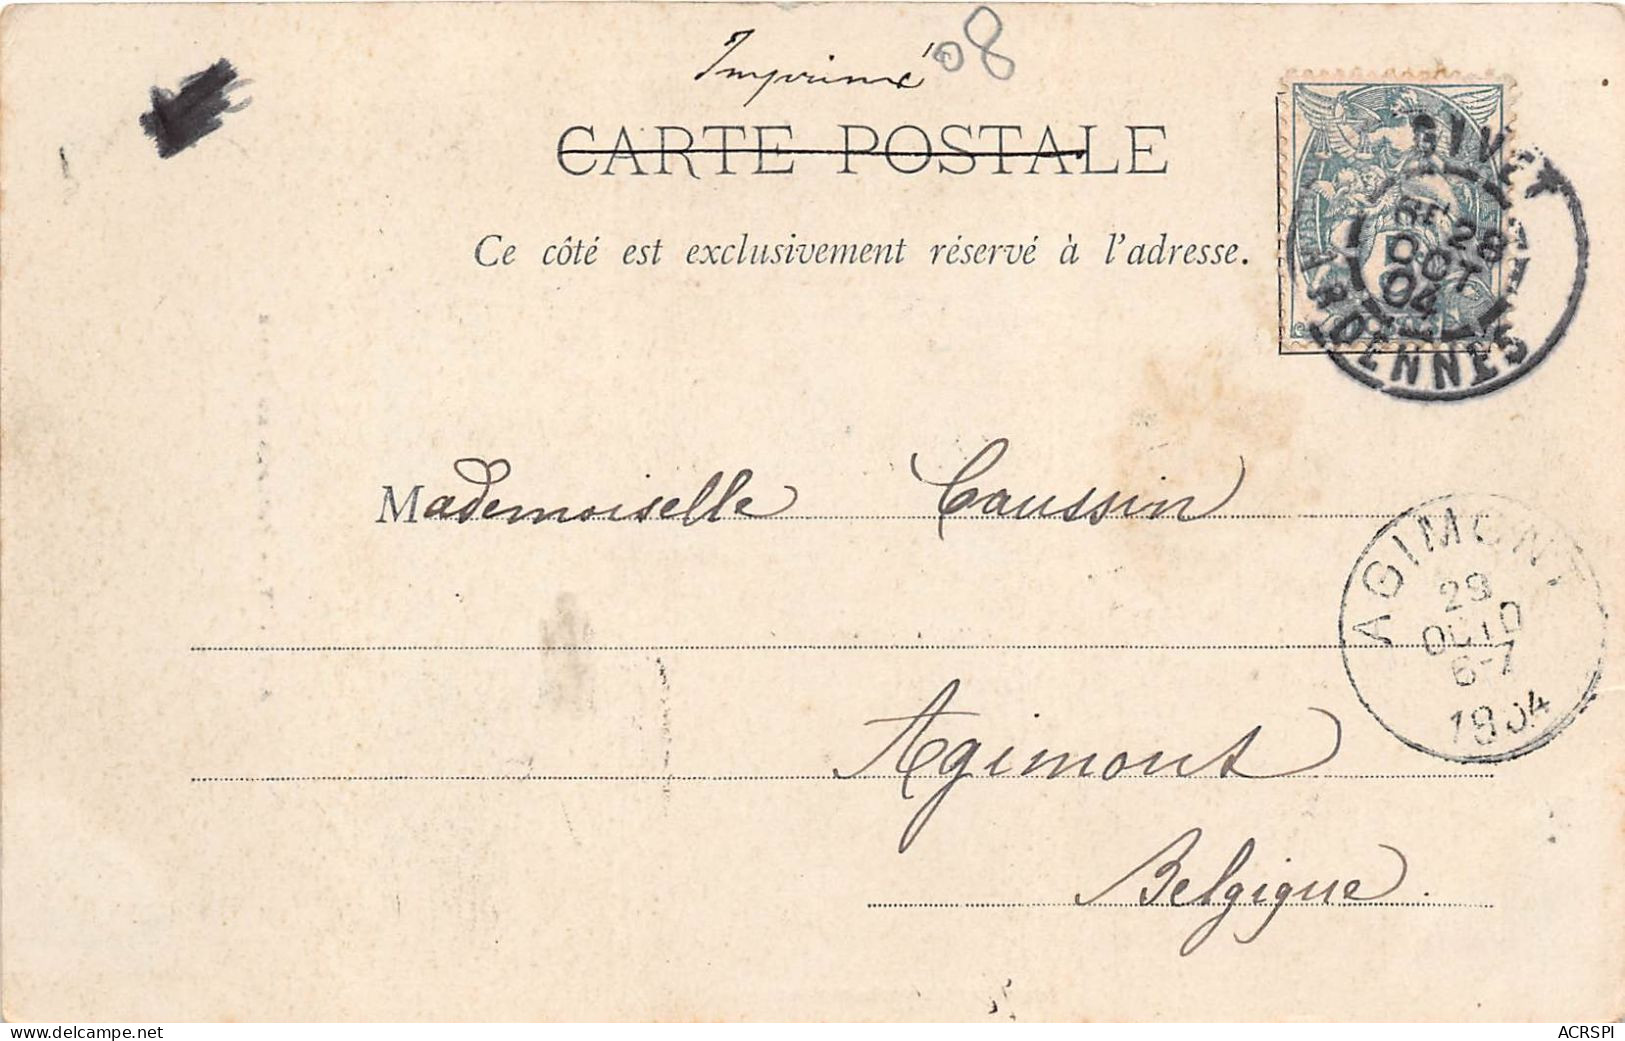 Imprimé
08
CARTE POSTALE
Ce côté est exclusivement réservé à l'adresse.
GIVET
28
OCT
04
ARDENNES
Mademoiselle Caussin
AGIMONT
29
OCTO
6-7
1904
Agimont
Belgique.
www.delcampe.net
ACRSPI